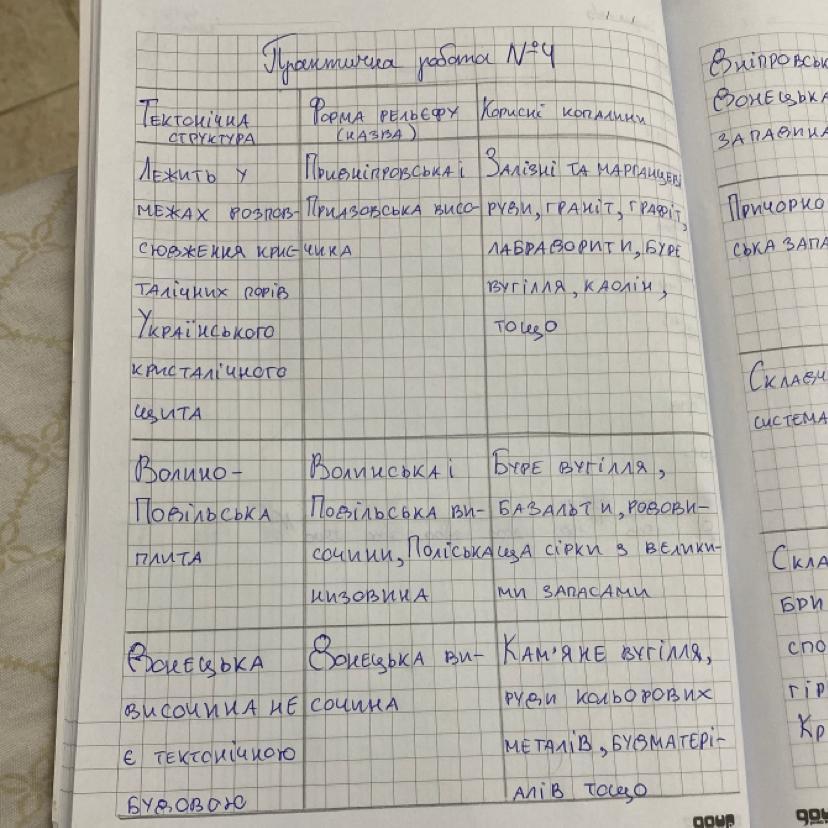 Практична робота №4
Тектонічна структура
Форма рельєфу (назва)
Корисні копалини
Лежить у
межах розпов-
сюдження крис-
талічних порів
Українського
кристалічного
щита
Придніпровська і
Приазовська висо-
чина
Залізні та марганцеві
руди, граніт, графіт,
лабрадорити, буре
вугілля, каолін,
тощо
Волино-
Подільська
плита
Волинська і
Подільська ви-
сочини, Поліська
низовина
Буре вугілля,
базальти, родови-
ща сірки з велики-
ми запасами
Донецька
височина не
є тектонічною
будовою
Донецька ви-
сочина
Кам'яне вугілля,
руди кольорових
металів, будматері-
алів тощо
Донецька
западина
Причорно
ська запа
Складч
система
Скла
бри
спо
гір
Кр